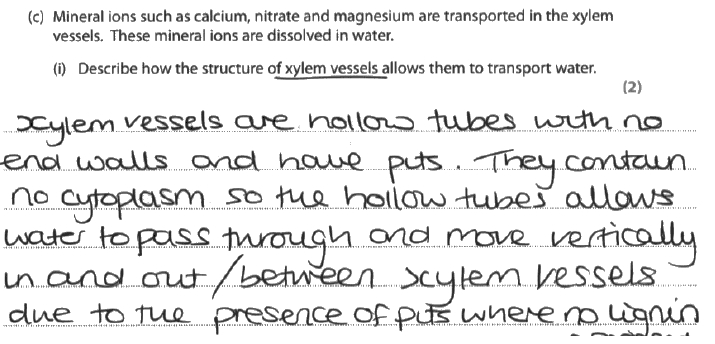 (c) Mineral ions such as calcium, nitrate and magnesium are transported in the xylem
vessels. These mineral ions are dissolved in water.
(i) Describe how the structure of xylem vessels allows them to transport water.
(2)
xylem vessels are hollow tubes with no
end walls and have pits. They contain
no cytoplasm so the hollow tubes allows
water to pass through and move vertically
in and out / between xylem vessels
due to the presence of pits where no lignin